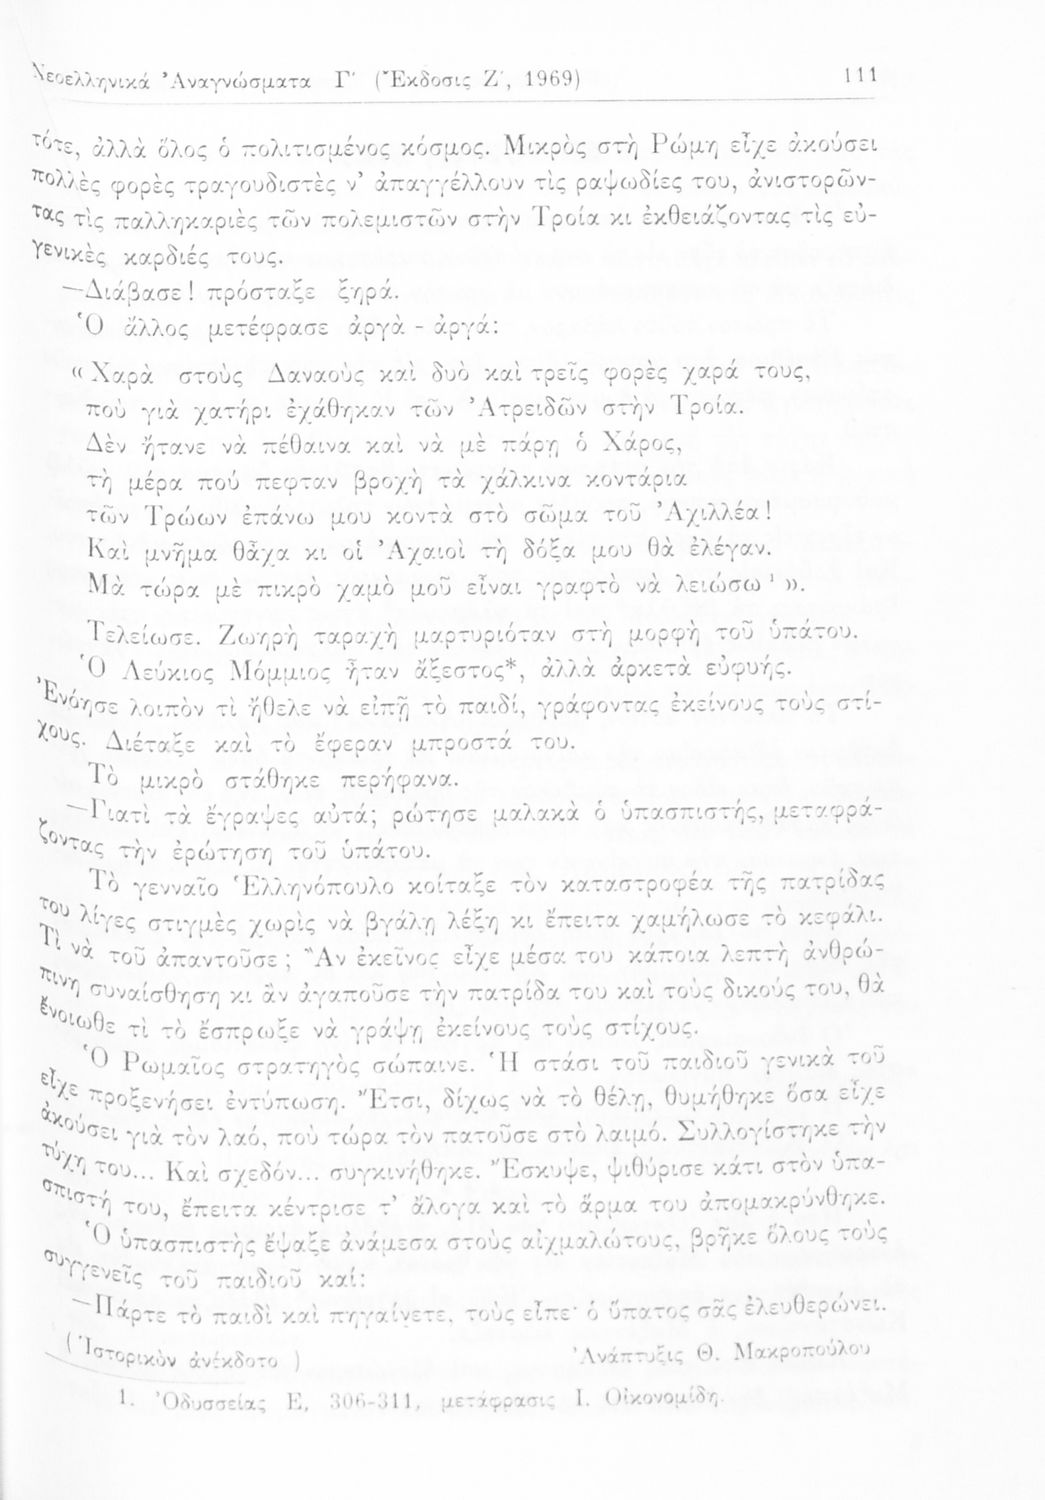 Νεοελληνικά Ἀναγνώσματα Γ' (Ἔκδοσις Ζ', 1969) 111
τότε, ἀλλὰ ὅλος ὁ πολιτισμένος κόσμος. Μικρὸς στὴ Ρώμη εἶχε ἀκούσει
πολλὲς φορὲς τραγουδιστὲς ν' ἀπαγγέλλουν τὶς ραψωδίες του, ἀνιστορῶν-
τας τὶς παλληκαριὲς τῶν πολεμιστῶν στὴν Τροία κι ἐκθειάζοντας τὶς εὐ-
γενικὲς καρδιές τους.
—Διάβασε! πρόσταξε ξηρά.
Ὁ ἄλλος μετέφρασε ἀργὰ - ἀργά:
« Χαρὰ στοὺς Δαναοὺς καὶ δυὸ καὶ τρεῖς φορὲς χαρά τους,
ποὺ γιὰ χατήρι ἐχάθηκαν τῶν Ἀτρειδῶν στὴν Τροία.
Δὲν ἤτανε νὰ πέθαινα καὶ νὰ μὲ πάρῃ ὁ Χάρος,
τὴ μέρα πού πεφταν βροχὴ τὰ χάλκινα κοντάρια
τῶν Τρώων ἐπάνω μου κοντὰ στὸ σῶμα τοῦ Ἀχιλλέα!
Καὶ μνῆμα θἆχα κι οἱ Ἀχαιοὶ τὴ δόξα μου θὰ ἐλέγαν.
Μὰ τώρα μὲ πικρὸ χαμὸ μοῦ εἶναι γραφτὸ νὰ λειώσω ¹ ».
Τελείωσε. Ζωηρὴ ταραχὴ μαρτυριόταν στὴ μορφὴ τοῦ ὑπάτου.
Ὁ Λεύκιος Μόμμιος ἦταν ἄξεστος*, ἀλλὰ ἀρκετὰ εὐφυής.
Ἐνόησε λοιπὸν τὶ ἤθελε νὰ εἰπῇ τὸ παιδί, γράφοντας ἐκείνους τοὺς στί-
χους. Διέταξε καὶ τὸ ἔφεραν μπροστά του.
Τὸ μικρὸ στάθηκε περήφανα.
—Γιατὶ τὰ ἔγραψες αὐτά; ρώτησε μαλακὰ ὁ ὑπασπιστής, μεταφρά-
ζοντας τὴν ἐρώτηση τοῦ ὑπάτου.
Τὸ γενναῖο Ἑλληνόπουλο κοίταξε τὸν καταστροφέα τῆς πατρίδας
του λίγες στιγμὲς χωρὶς νὰ βγάλῃ λέξη κι ἔπειτα χαμήλωσε τὸ κεφάλι.
Τὶ νὰ τοῦ ἀπαντοῦσε ; Ἂν ἐκεῖνος εἶχε μέσα του κάποια λεπτὴ ἀνθρώ-
πινη συναίσθηση κι ἂν ἀγαποῦσε τὴν πατρίδα του καὶ τοὺς δικούς του, θὰ
ἔνοιωθε τὶ τὸ ἔσπρωξε νὰ γράψῃ ἐκείνους τοὺς στίχους.
Ὁ Ρωμαῖος στρατηγὸς σώπαινε. Ἡ στάσι τοῦ παιδιοῦ γενικὰ τοῦ
εἶχε προξενήσει ἐντύπωση. Ἔτσι, δίχως νὰ τὸ θέλῃ, θυμήθηκε ὅσα εἶχε
ἀκούσει γιὰ τὸν λαό, ποὺ τώρα τὸν πατοῦσε στὸ λαιμό. Συλλογίστηκε τὴν
τύχη του... Καὶ σχεδόν... συγκινήθηκε. Ἔσκυψε, ψιθύρισε κάτι στὸν ὑπα-
σπιστή του, ἔπειτα κέντρισε τ' ἄλογα καὶ τὸ ἅρμα του ἀπομακρύνθηκε.
Ὁ ὑπασπιστὴς ἔψαξε ἀνάμεσα στοὺς αἰχμαλώτους, βρῆκε ὅλους τοὺς
συγγενεῖς τοῦ παιδιοῦ καί:
—Πάρτε τὸ παιδὶ καὶ πηγαίνετε, τοὺς εἶπε· ὁ ὕπατος σᾶς ἐλευθερώνει.
( Ἱστορικὸν ἀνέκδοτο ) Ἀνάπτυξις Θ. Μακροπούλου
1. Ὀδυσσείας Ε, 306-311, μετάφρασις Ι. Οἰκονομίδη.